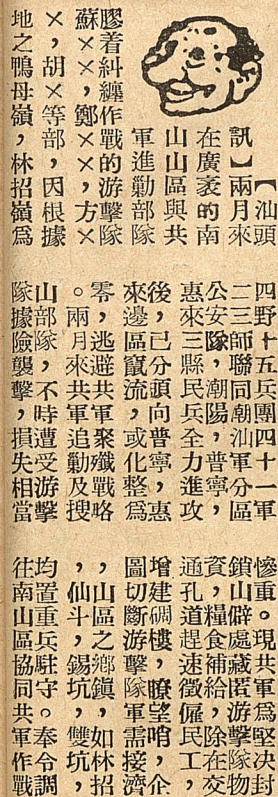 【汕頭
訊】兩月來
在廣袤的南
山山區與共
軍進勦部隊
膠着糾纏作戰的游擊隊
蘇××,鄭××,方×
×,胡×等部,因根據
地之鴨母嶺,林招嶺爲
四野十五兵團四十一軍
二三師聯同潮汕軍分區
公安隊,潮陽,普寧,
惠來三縣民兵全力進攻
後,已分頭向普寧,惠
來邊區竄流,或化整爲
零,逃避共軍聚殲戰略
。兩月來共軍追勦及搜
山部隊,不時遭受游擊
隊據險襲擊,損失相當
慘重。現共軍爲堅決封
鎖山僻處藏匿游擊隊物
資,糧食補給,除在交
通孔道趕速徵僱民工,
增建碉樓,瞭望哨,企
圖切斷游擊隊軍需接濟
,山區之鄉鎮,如林招
,仙斗,錫坑,雙坑,
均置重兵駐守。奉令調
往南山區協同共軍作戰